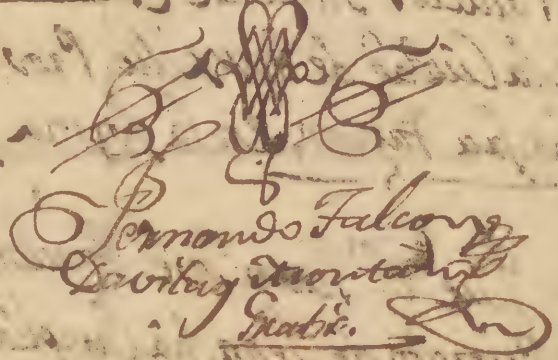 Fernando Falcon y
Davila y Montalvo
Gratis.